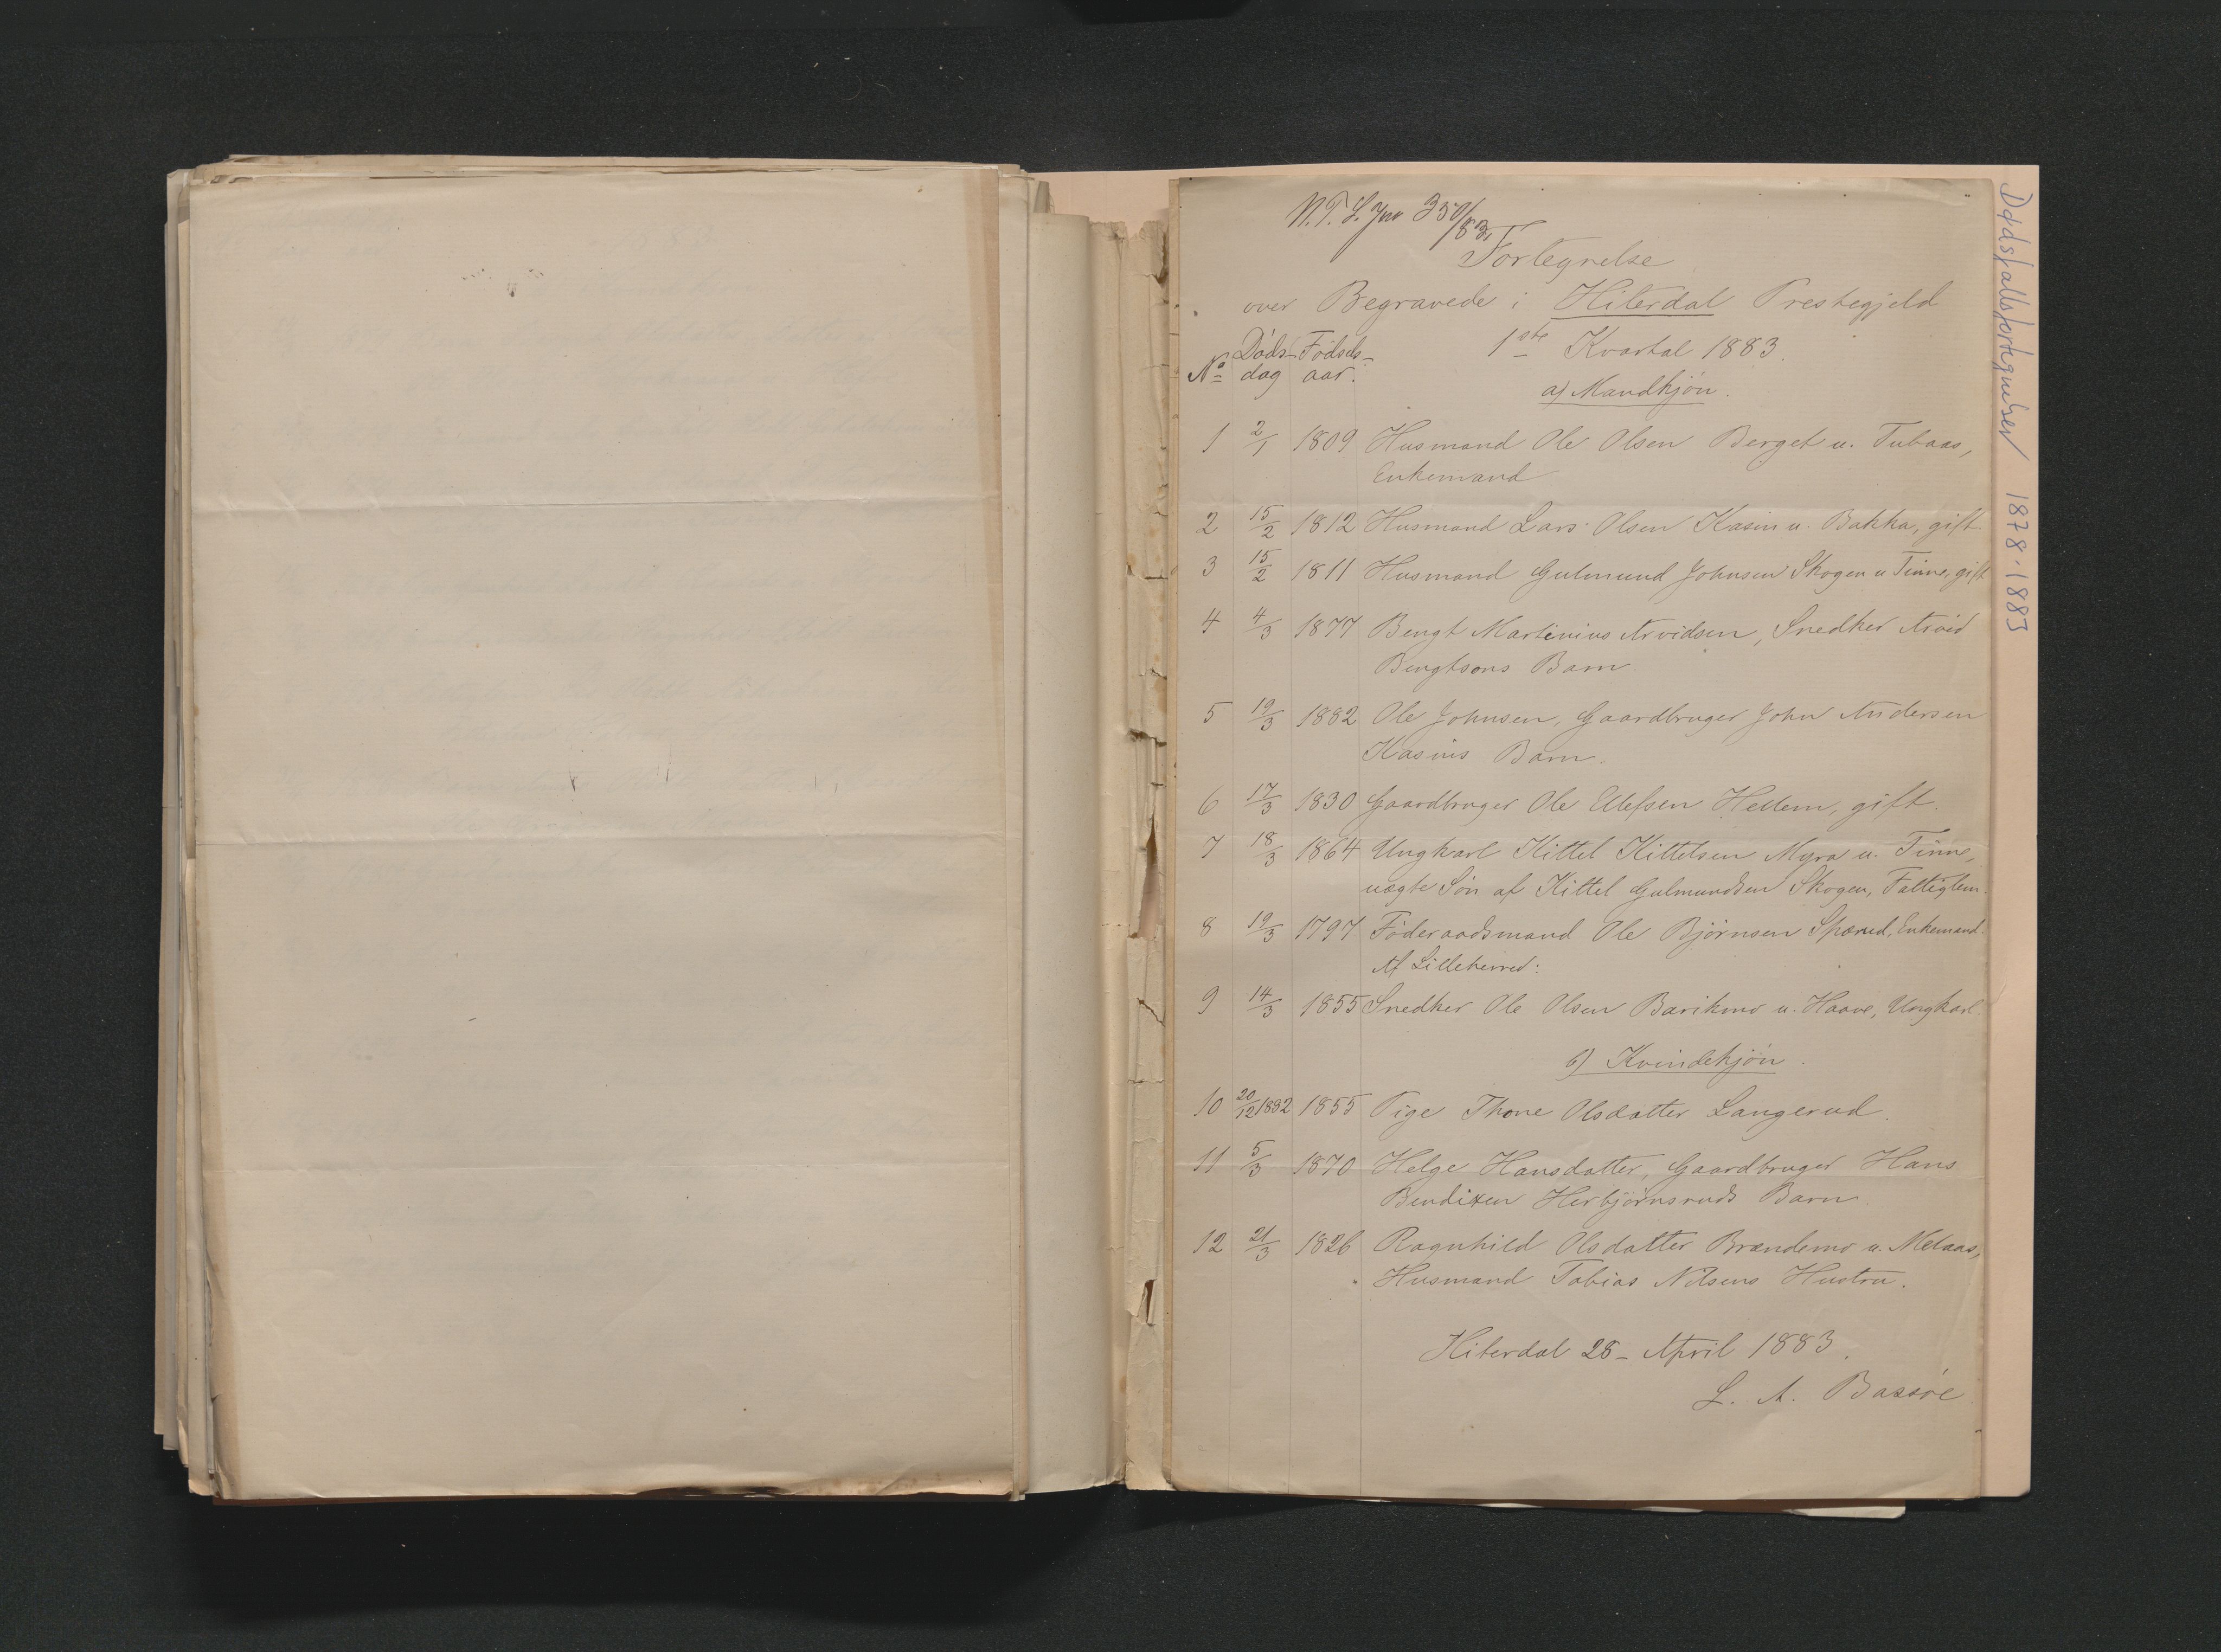 N.T.L. Jno 350/83.
Fortegnelse
over Begravede i Hiterdal Prestegjeld
1ste Kvartal 1883.
No Døds-dag Fødsels-aar.
a) Mandkjøn.
1 2/1 1809 Husmand Ole Olsen Berget u. Tubaas,
Enkemand
2 15/2 1812 Husmand Lars Olsen Kasin u. Bakka, gift.
3 15/2 1811 Husmand Gulmund Johnsen Skogen u Tinne, gift
4 4/3 1877 Bengt Martinius Arvidsen, Snedker Arvid
Bengtsons Barn.
5 19/3 1882 Ole Johnsen, Gaardbruger John Andersen
Kasins Barn.
6 17/3 1830 Gaardbruger Ole Ellefsen Hellem, gift.
7 18/3 1864 Ungkarl Kittel Kittelsen Myra u. Tinne,
uægte Søn af Kittel Gulmundsen Skogen, Fattiglem.
8 19/3 1797 Føderaadsmand Ole Bjørnsen Sparud, Enkemand.
Af Lilleherred:
9 14/3 1855 Snedker Ole Olsen Barikmo u. Haave, Ungkarl.
b) Kvindekjøn.
10 20/12 1882 1855 Pige Thone Olsdatter Langerud.
11 5/3 1870 Helge Hansdatter, Gaardbruger Hans
Bendixen Herbjørnsruds Barn.
12 21/3 1826 Ragnhild Olsdatter Brandemo u. Melaas,
Husmand Tobias Nilsens Hustru.
Hiterdal 28- April 1883.
L. A. Bassøe
Dødsfallsfortegnelser 1878-1883